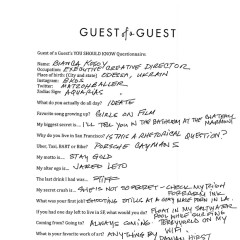 GUEST of a GUEST
Guest of a Guest's YOU SHOULD KNOW Questionnaire:
Name: BIANCA KOSOY
Occupation: EXECUTIVE CREATIVE DIRECTOR
Place of birth (City and state) ODESSA, UKRAIN
Instagram: BKOS
Twitter: MATZOHBALLER
Zodiac Sign: AQUARIUS
What do you actually do all day? IDEATE
Favorite song growing up? GIRLS ON FILM
My biggest secret is... I'LL TELL YOU IN THE BATHROOM AT THE CHATEAU MARMONT
Why do you live in San Francisco? IS THIS A RHETORICAL QUESTION?
Uber, Taxi, BART or Bike? PORSCHE CAYMANS
My motto is... STAY GOLD
My alter ego is... JARED LETO
The last drink I had was... STIFF
My secret crush is... SHE'S NOT SO SECRET - CHECK MY
What was your first job? SHOOTING STILLS AT A
If you had one day left to live in SF what would you do? FLOAT IN MY SALTWATER
POOL WHILE SURFING
Coming from? Going to? ALWAYS COMING.
MY WIFI
What is your favorite work of art? ANYTHING BY DAMIAN HIRST